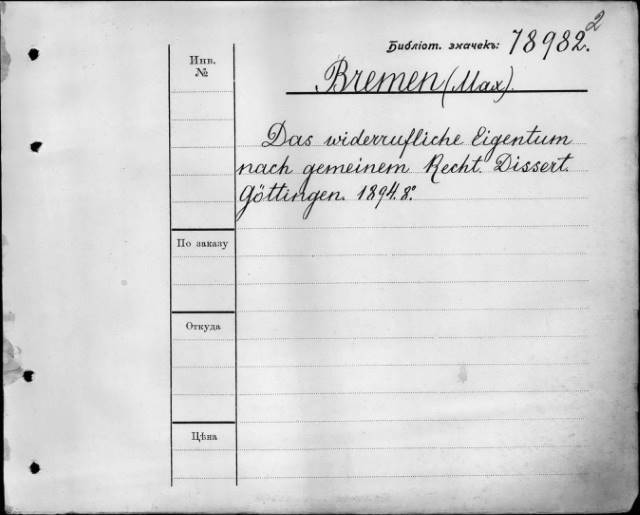 2
Библіот. значекъ: 78982.
Инв.
№
Bremen (Max).
Das widerrufliche Eigentum
nach gemeinem Recht. Dissert.
Göttingen. 1894. 8°
По заказу
Откуда
Цѣна